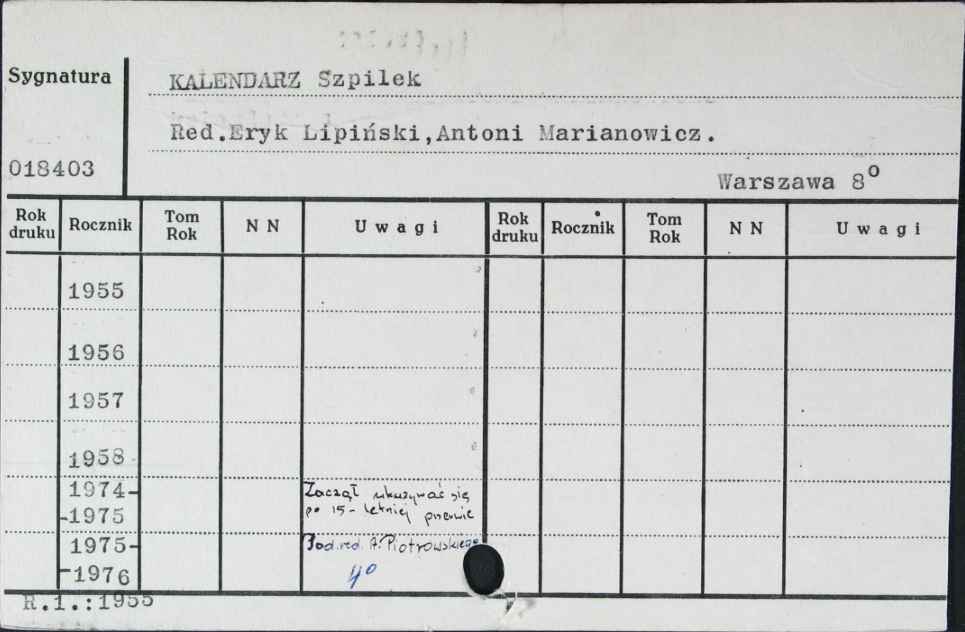 Sygnatura
KALENDARZ Szpilek
Red.Eryk Lipiński,Antoni Marianowicz.
018403
Warszawa 8º
Rok druku Rocznik Tom Rok NN Uwagi Rok druku Rocznik Tom Rok NN Uwagi
1955
1956
1957
1958
1974-
-1975
Zaczął ukazywać się
po 15-letniej przerwie
1975-
-1976
Pod red. A. Piotrowskiego
4º
R.1.:1955